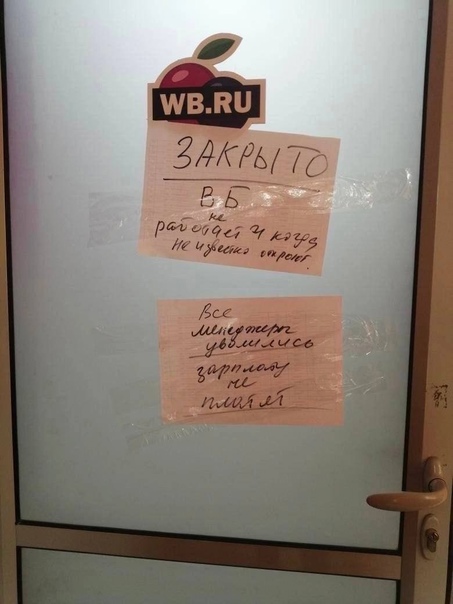 WB.RU
ЗАКРЫТО
ВБ
не
работает и когда
не известно откроют.
Все
менеджеры
уволились
зарплату
не
платят